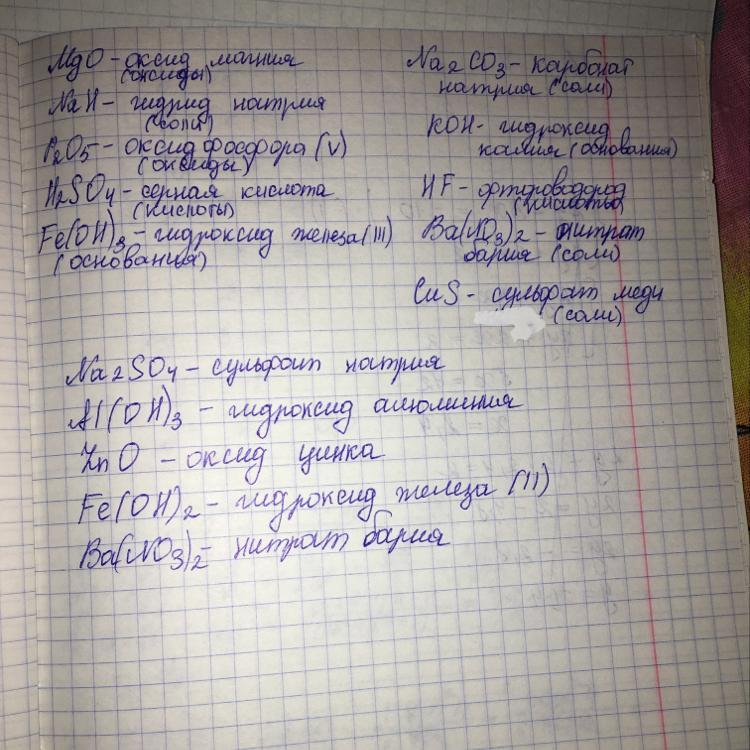 MgO - оксид магния
(оксиды)
NaH - гидрид натрия
(соли)
P2O5 - оксид фосфора (V)
(оксиды)
H2SO4 - серная кислота
(кислоты)
Fe(OH)3 - гидроксид железа (III)
(основания)
Na2CO3 - карбонат
натрия (соли)
KOH - гидроксид
калия (основания)
HF - фтороводород
(кислоты)
Ba(NO3)2 - нитрат
бария (соли)
CuS - сульфат меди
(соли)
Na2SO4 - сульфат натрия
Al(OH)3 - гидроксид алюминия
ZnO - оксид цинка
Fe(OH)2 - гидроксид железа (II)
Ba(NO3)2 - нитрат бария